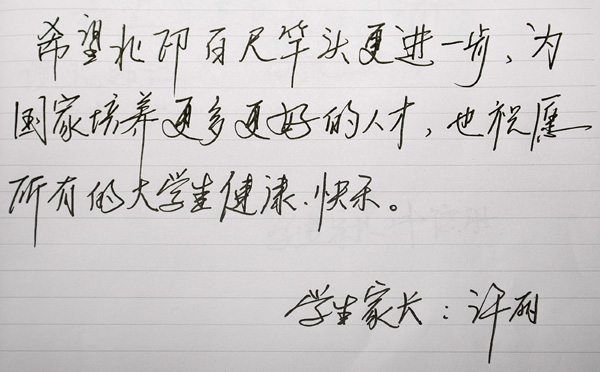 希望北印百尺竿头更进一步、为
国家培养更多更好的人才，也祝愿
所有的大学生健康、快乐。
学生家长：许丽